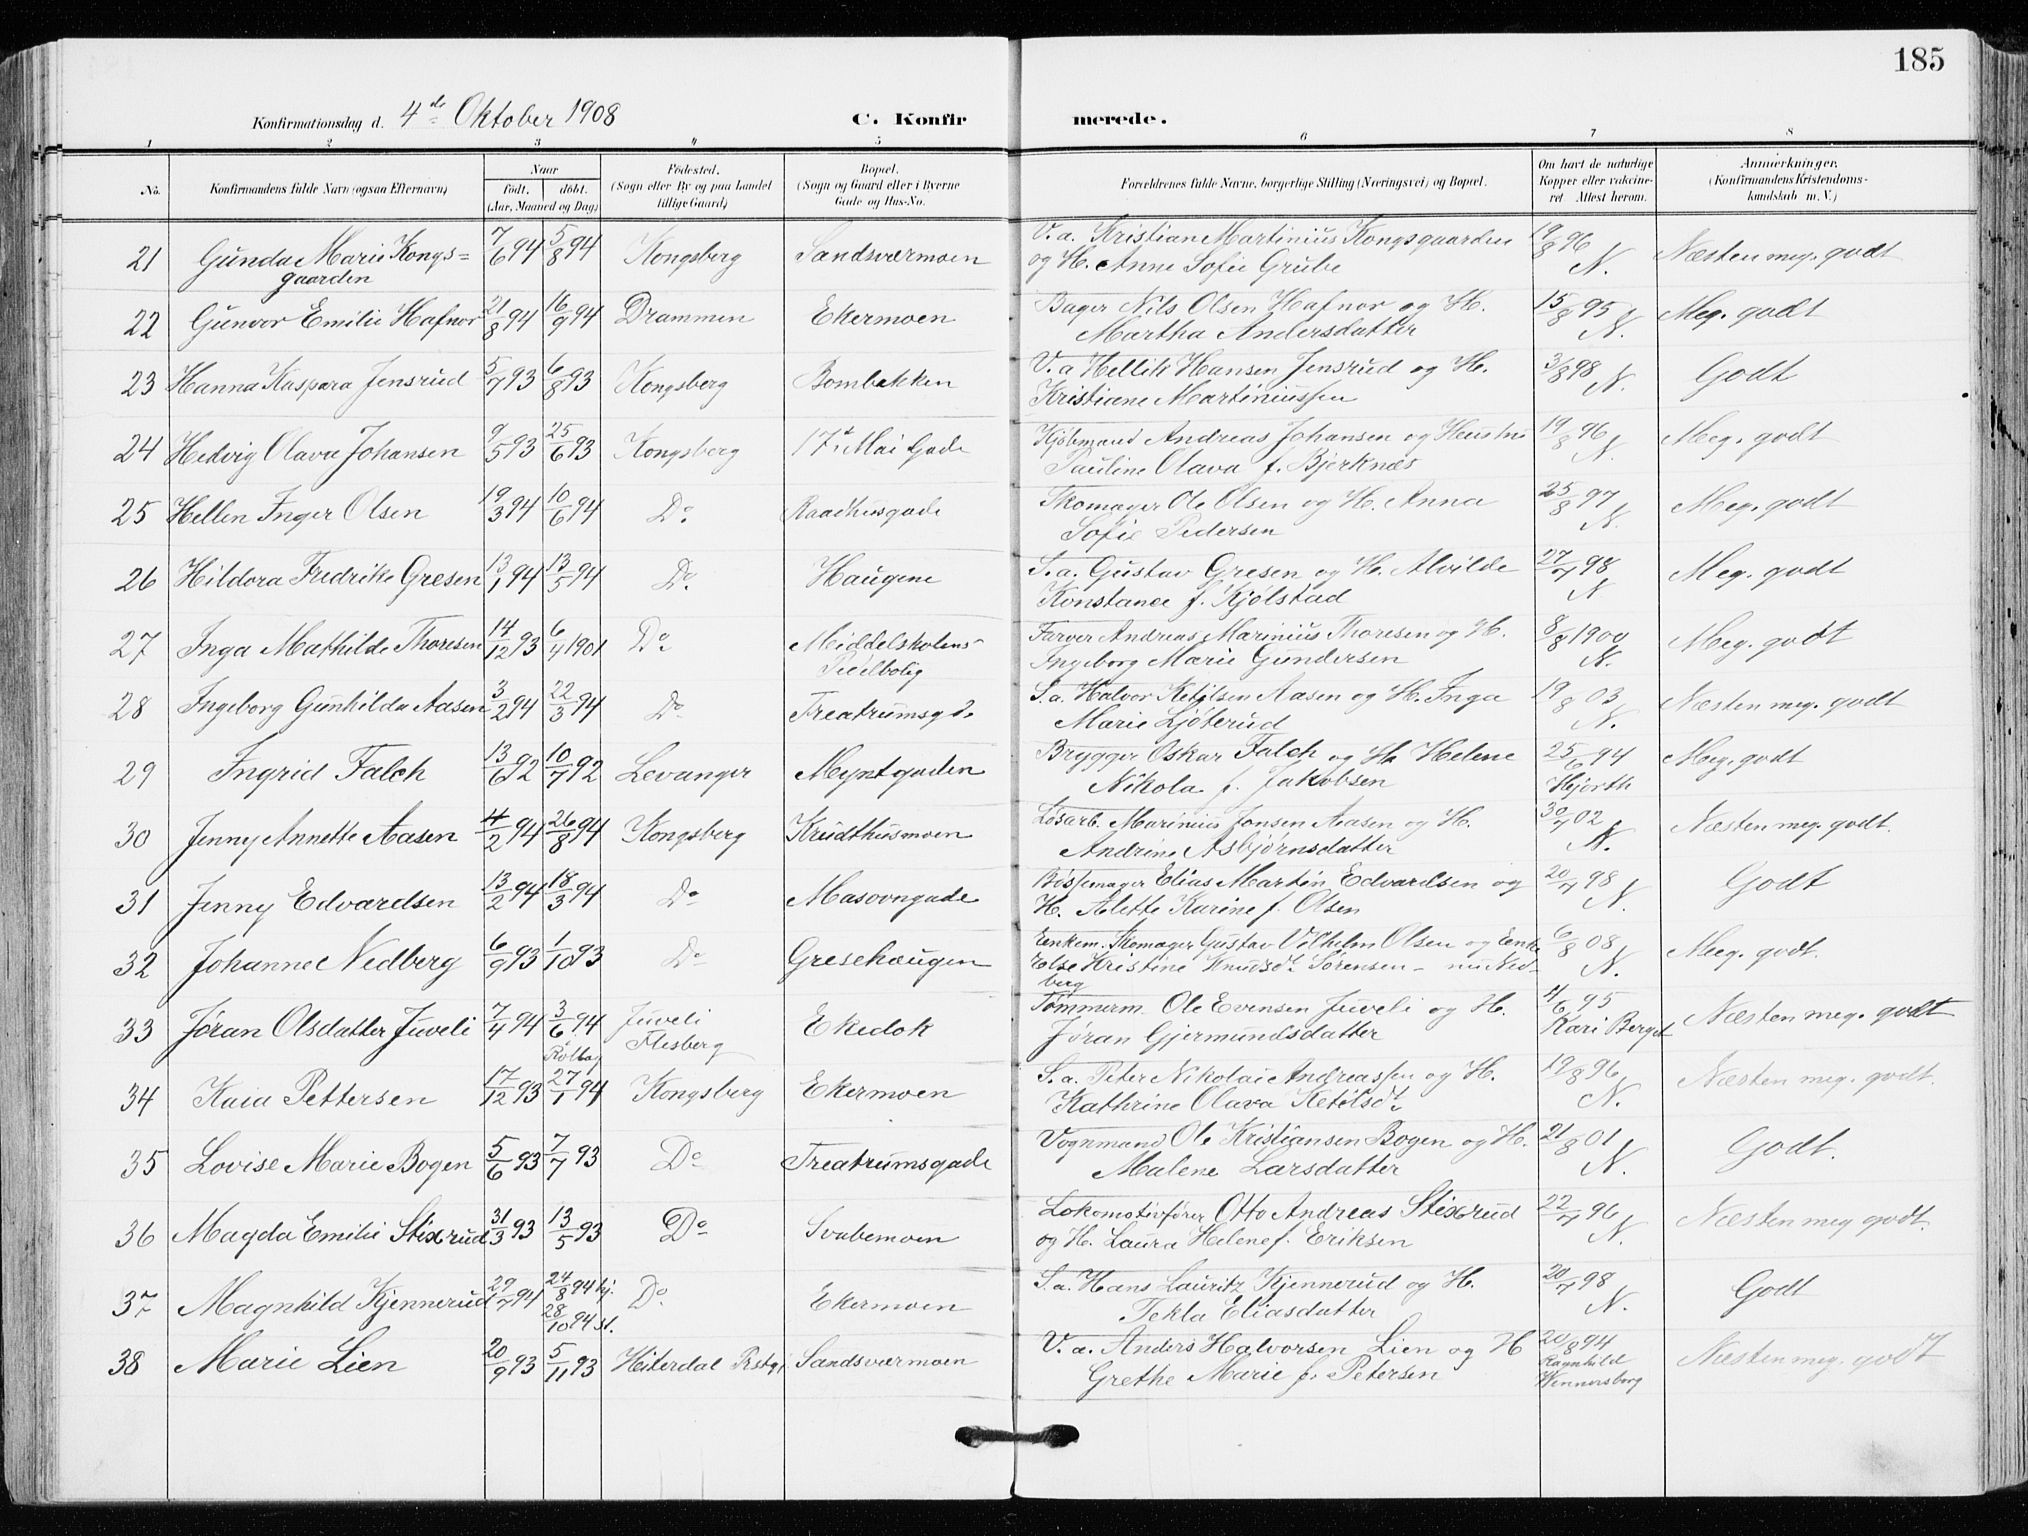 185
Konfirmationsdag d. 4de Oktober 1908 C. Konfirmerede.
1 2 3 4 5 6 7 8
No. Konfirmandens fulde Navn (ogsaa Efternavn) Naar født. døbt. (Aar, Maaned og Dag) Fødested. (Sogn eller By og paa Landet tillige Gaard) Bopæl. (Sogn og Gaard eller i Byerne Gade og Hus-No. Forældrenes fulde Navne, borgerlige Stilling (Næringsvei) og Bopæl. Om havt de naturlige Kopper eller vakcineret Attest herom. Anmærkninger. (Konfirmandens Kristendomskundskab m. V.)
21 Gunda Marie Kongs= 7/6 94 5/8 94 Kongsberg Sandsværmoen V. a. Kristian Martinius Kongsgaarden 19/8 96 Næsten meg. godt
gaarden og H. Anne Sofie Grube N.
22 Gunvor Emilie Hafnor 21/8 94 16/9 94 Drammen Ekermoen Bager Nils Olsen Hafnor og H. 15/8 95 Meg. godt
Martha Andersdatter N.
23 Hanna Kaspara Jensrud 5/7 93 6/8 93 Kongsberg Bombakken V. a Hellik Hansen Jensrud og H. 3/8 98 Godt
Kristiane Martiniussen N.
24 Hedvig Olava Johansen 9/5 93 25/6 93 Kongsberg 17de Mai Gade Kjøbmand Andreas Johansen og Hustru 19/8 96 Meg. godt
Pauline Olava f. Bjerknæs N.
25 Hellen Inger Olsen 19/3 94 10/6 94 Do Raadhusgade Skomager Ole Olsen og H. Anna 25/8 97 Meg. godt
Sofie Pedersen N.
26 Hildora Fredrike Gresen 13/1 94 13/5 94 Do Haugene S. a. Gustav Gresen og H. Alvilde 27/7 98 Meg. godt
Konstance f. Kjølstad N
27 Inga Mathilde Thoresen 14/12 93 6/4 1901 Do Middelskolens- Farver Andreas Marinius Thoresen og H. 8/8 1900 Meg. godt
Pedelbolig Ingeborg Marie Gundersen N.
28 Ingeborg Gunhilda Aasen 3/2 94 22/3 94 Do Treatrumsgde S. a. Halvor Ketilsen Aasen og H. Inga 19/8 03 Næsten meg. godt
Marie Ljøterud N.
29 Ingrid Falch 13/6 92 10/7 92 Levanger Myntgaden Brygger Oskar Falch og H Helene 25/6 94 Meg. godt
Nikola f. Jakobsen Hjorth
30 Jenny Annette Aasen 4/2 94 26/8 94 Kongsberg Krudthusmoen Løsarb. Marinius Jonsen Aasen og H. 30/7 02 Næsten meg. godt.
Andrine Asbjørnsdatter N.
31 Jenny Edvardsen 13/2 94 18/3 94 Do Masovngade Bøssemager Elias Martin Edvardsen og 20/7 98 Godt
H. Alette Karine f. Olsen N.
32 Johanne Nedberg 6/9 93 1/10 93 Do Gresehaugen Enkem. Skomager Gustav Vilhelm Olsen og Enke 6/8 08 Meg. godt.
Else Kristine Knudsdt Sørensen - nu Ned- N.
berg
33 Jøran Olsdatter Juveli 7/4 94 3/6 94 Juveli Ekedok Tømmerm. Ole Evensen Juveli og H. 4/6 95 Næsten meg. godt
Rollag Flesberg Jøran Gjermundsdatter Kari Berget
34 Kaia Pettersen 17/12 93 27/1 94 Kongsberg Ekermoen S. a. Peter Nikolai Andreassen og H. 19/8 96 Næsten meg. godt.
Kathrine Olava Ketilsdt N.
35 Lovise Marie Bogen 5/6 93 7/7 93 Do Treatrumsgade Vognmand Ole Kristiansen Bogen og H. 21/8 01 Godt.
Malene Larsdatter N.
36 Magda Emilie Stixrud 31/3 93 13/5 93 Do Svabemoen Lokomotivfører Otto Andreas Stixrud 22/7 96 Næsten meg godt.
og H. Laura Helene f. Eriksen N.
37 Magnhild Kjennerud 29/7 94 24/8 94 hj. Do Ekermoen S. a. Hans Lauritz Kjennerud og H. 20/7 98 Godt
28/10 94 st. Tekla Eliasdatter N.
38 Marie Lien 20/9 93 5/11 93 Hiterdal Prstgj. Sandsværmoen V. a. Anders Halvorsen Lien og H 20/8 94 Næsten meg. godt
Grethe Marie f. Petersen Ragnhild
Wennersborg